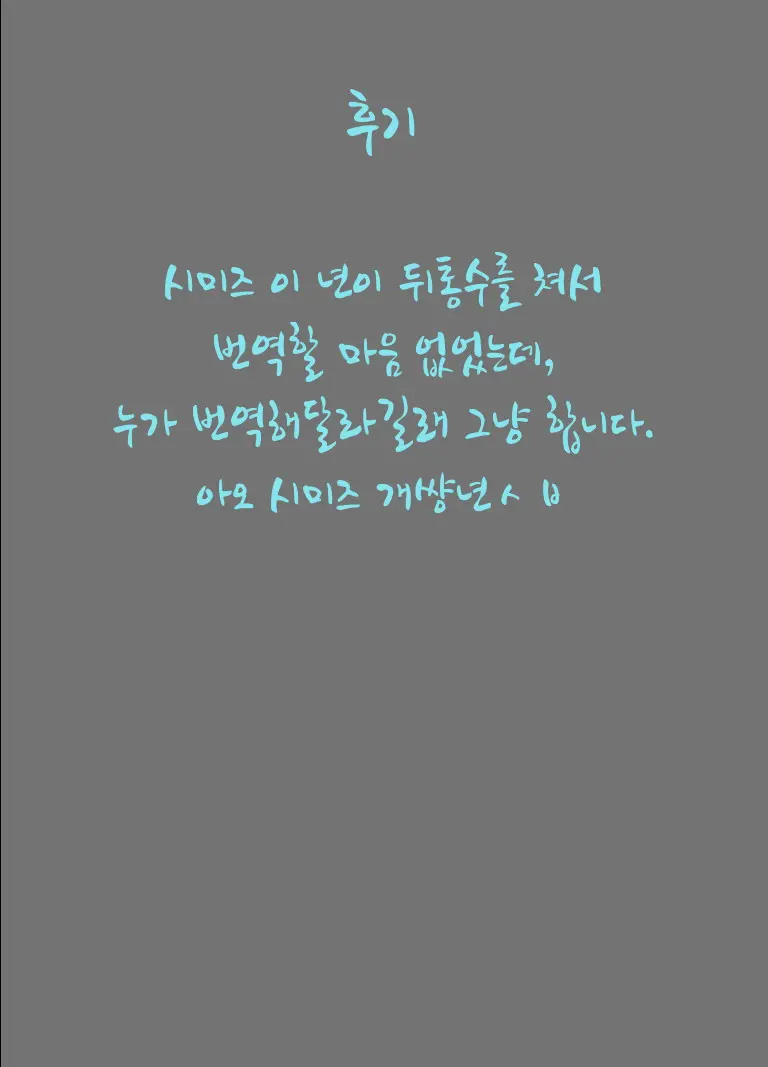 후기
시미즈 이 년이 뒤통수를 쳐서
번역할 마음 없었는데,
누가 번역해달라길래 그냥 합니다.
아오 시미즈 개썅년ㅅㅂ